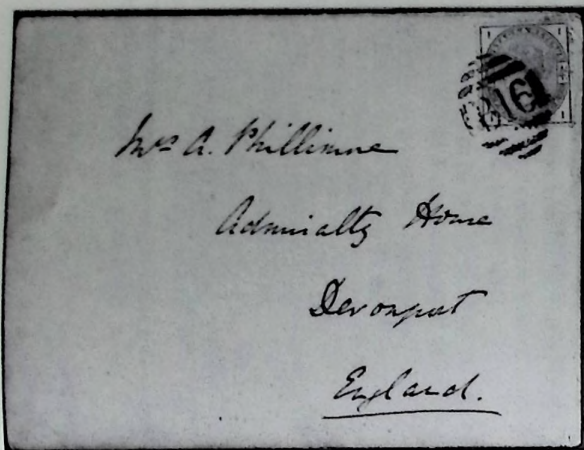 Mrs A. Phillimore
Admiralty House
Devonport
England.
B16